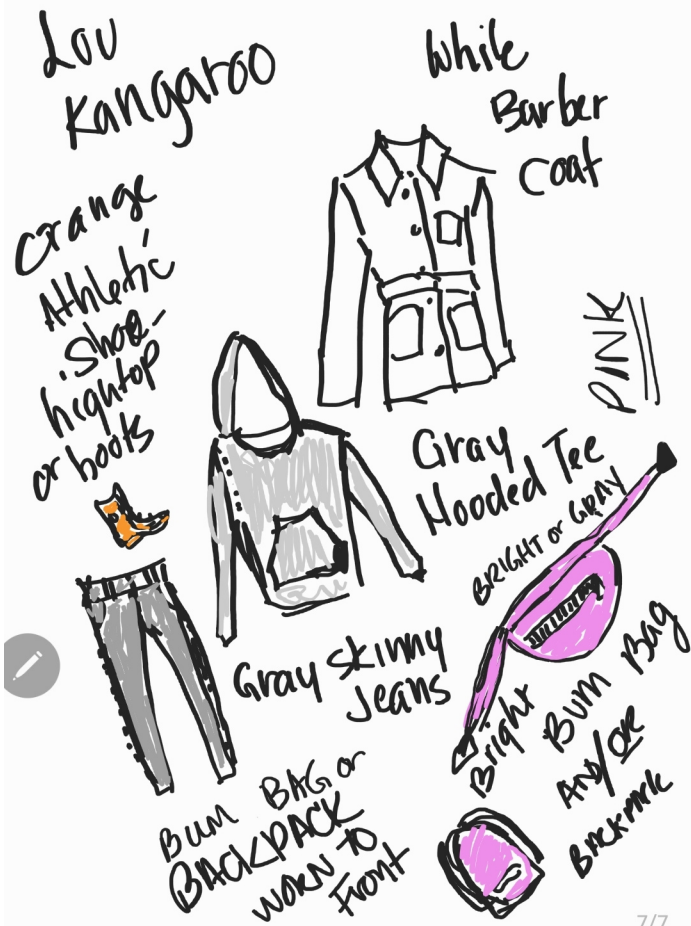 Lou
Kangaroo
While
Barber
Coat
Orange
Athletic
Shoe-
hightop
or boots
PINK
Gray
Hooded Tee
BRIGHT or GRAY
Gray Skinny
Jeans
Bright
Bum Bag
AND/OR
BACKPACK
BUM BAG or
BACKPACK
WORN TO
Front
7/7